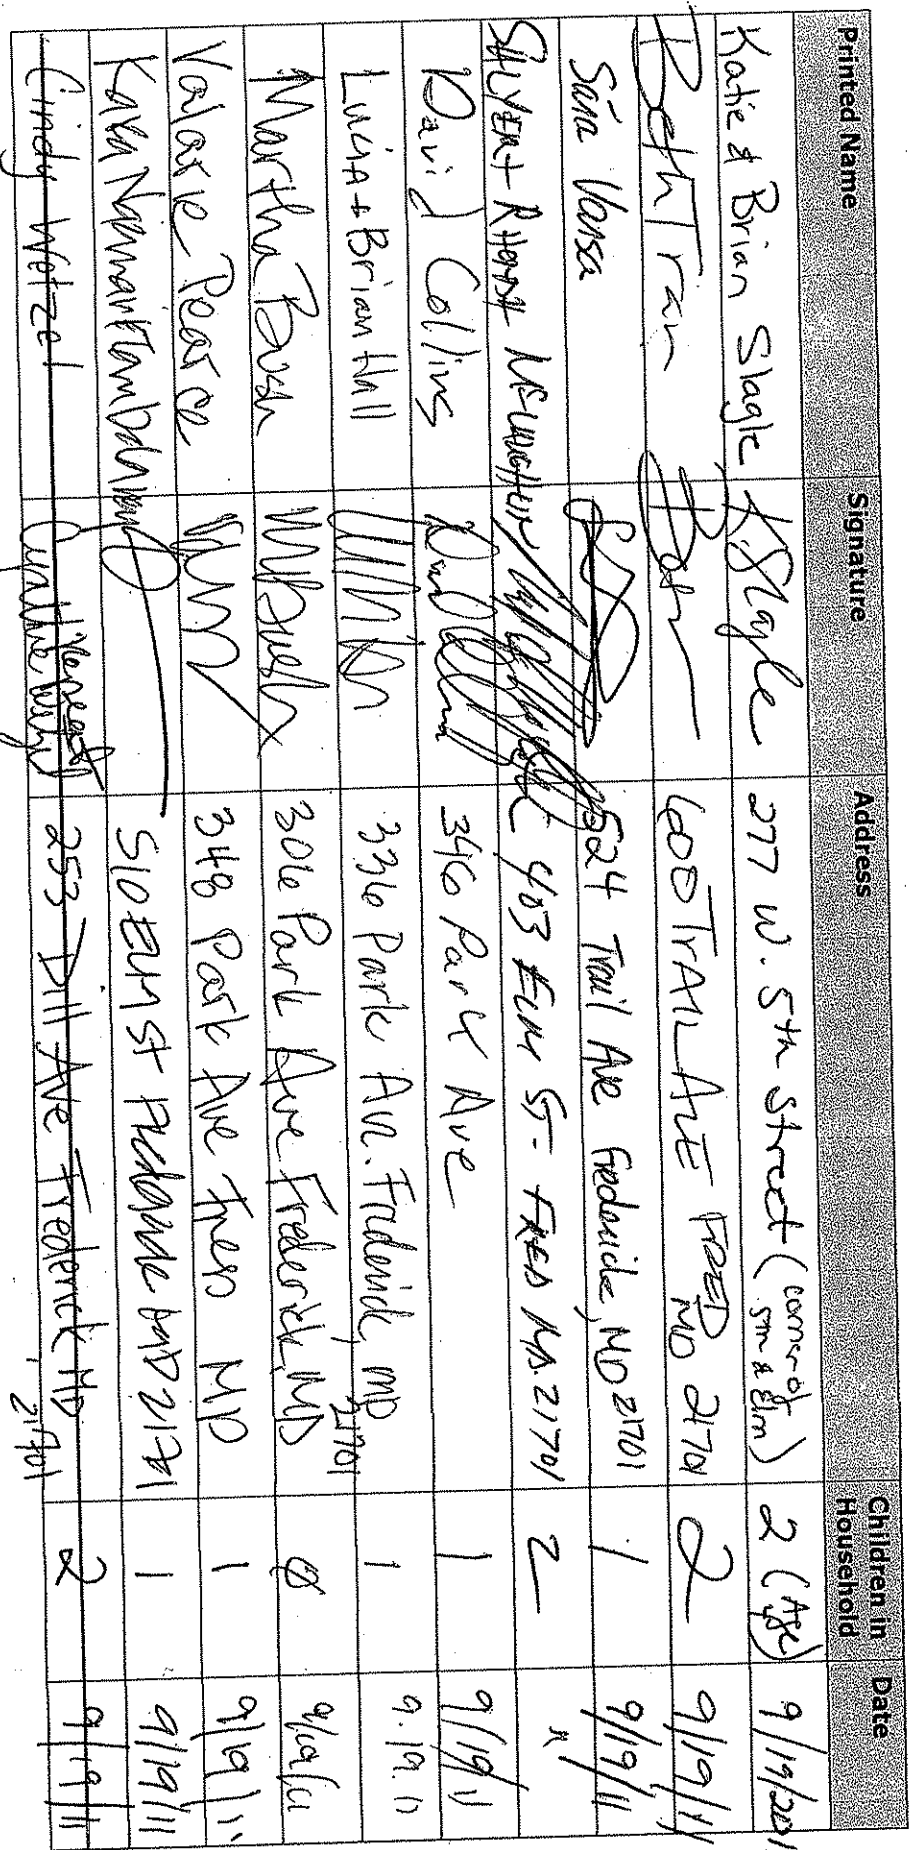 Printed Name Signature Address Children in Household Date
Katie & Brian Slagle K. Slagle 277 W. 5th Street (corner of 5th & Elm) 2 (Age) 9/19/2011
Beth Tran Beth 600 TRAIL AVE FRED MD 21701 2 9/19/11
Sara 524 Trail Ave Frederick, MD 21701 1 9/19/11
403 ELM ST - FRED MD. 21701 2 "
David Collins 346 Park Ave 1 9/19/11
Lucia + Brian Hall 336 Park Av. Frederick, MD 21701 1 9.19.11
Martha Bush MBush 306 Park Ave Frederick, MD 0 9/19/11
Valarie Pearce 348 Park Ave Fred MD 1 9/19/11
Kara 510 ELM St Frederick MD 21701 1 9/19/11
Cindy Wetzel 253 Dill Ave Frederick MD, 21701 2 9/19/11